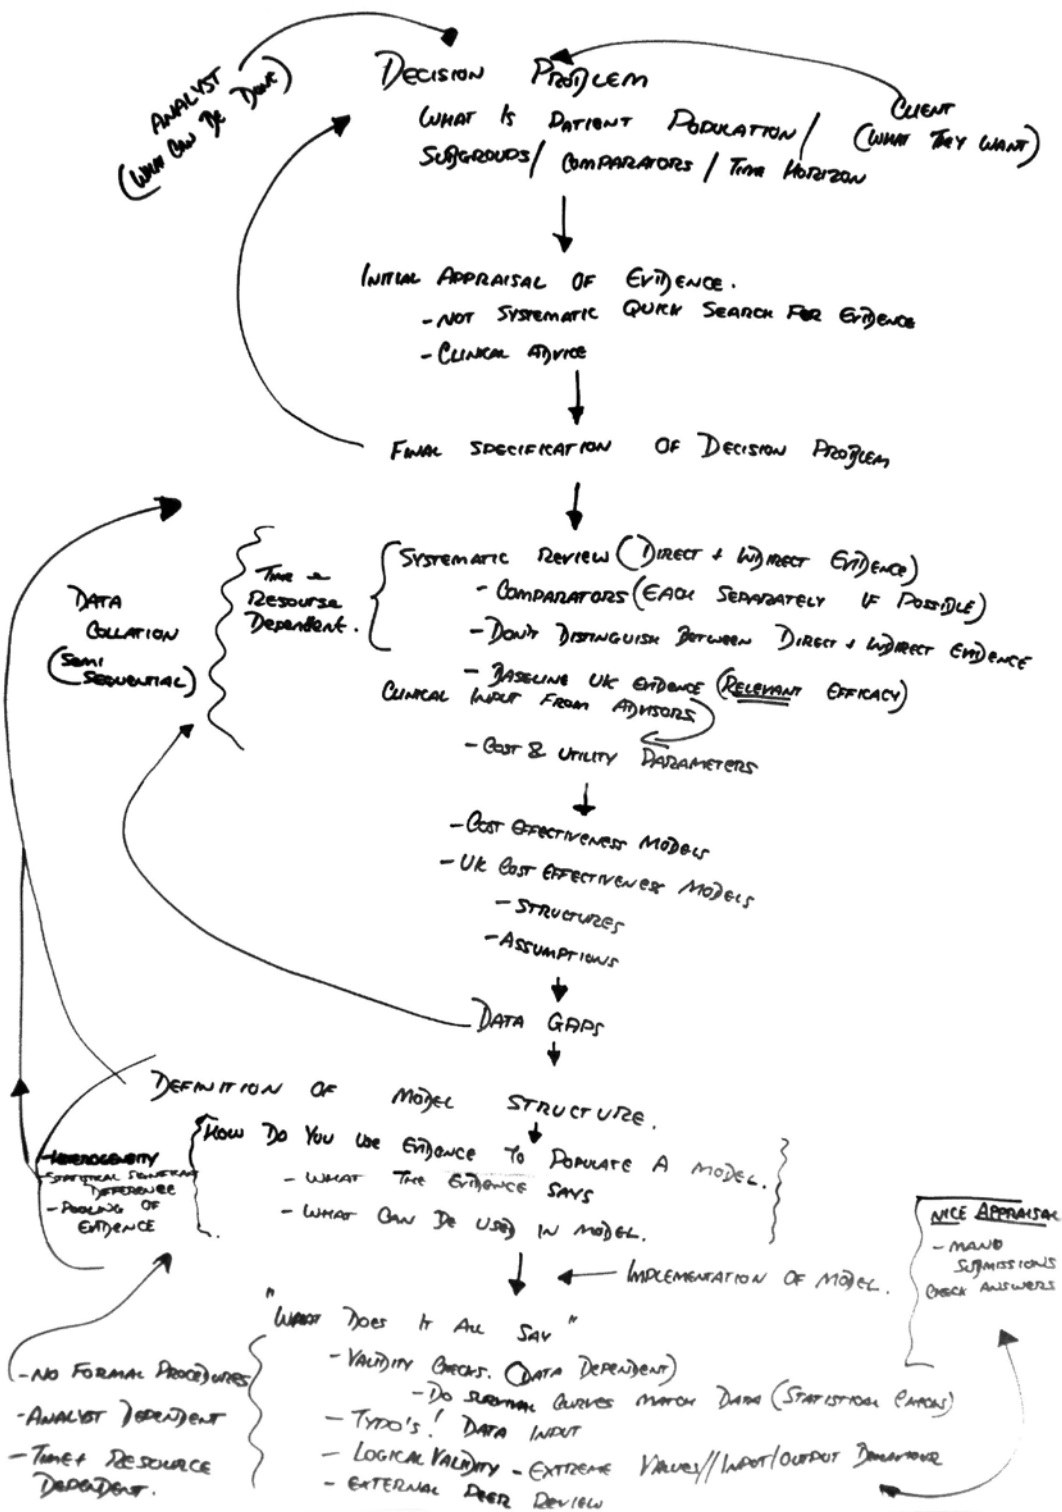 ANALYST
(WHAT CAN BE DONE)
DECISION PROBLEM
CLIENT
(WHAT THEY WANT)
WHAT IS PATIENT POPULATION /
SUBGROUPS / COMPARATORS / TIME HORIZON
INITIAL APPRAISAL OF EVIDENCE.
- NOT SYSTEMATIC QUICK SEARCH FOR EVIDENCE
- CLINICAL ADVICE
FINAL SPECIFICATION OF DECISION PROBLEM
DATA
COLLATION
(SEMI
SEQUENTIAL)
TIME &
RESOURSE
DEPENDENT.
SYSTEMATIC REVIEW (DIRECT + INDIRECT EVIDENCE)
- COMPARATORS (EACH SEPARATELY IF POSSIBLE)
- DON'T DISTINGUISH BETWEEN DIRECT + INDIRECT EVIDENCE
- BASELINE UK EVIDENCE (RELEVANT EFFICACY)
CLINICAL INPUT FROM ADVISORS
- COST & UTILITY PARAMETERS
- COST EFFECTIVENESS MODELS
- UK COST EFFECTIVENESS MODELS
- STRUCTURES
- ASSUMPTIONS
DATA GAPS
DEFINITION OF MODEL STRUCTURE.
- HETEROGENEITY
- STATISTICAL
DIFFERENCE
- POOLING OF
EVIDENCE
HOW DO YOU USE EVIDENCE TO POPULATE A MODEL.
- WHAT THE EVIDENCE SAYS
- WHAT CAN BE USED IN MODEL.
IMPLEMENTATION OF MODEL.
NICE APPRAISAL
- MANU
SUBMISSIONS
CHECK ANSWERS
"WHAT DOES IT ALL SAY"
- VALIDITY CHECKS. (DATA DEPENDENT)
- DO SURVIVAL CURVES MATCH DATA (STATISTICAL ERRORS)
- TYPO'S! DATA INPUT
- LOGICAL VALIDITY - EXTREME VALUES//INPUT/OUTPUT BEHAVIOUR
- EXTERNAL PEER REVIEW
- NO FORMAL PROCEDURES
- ANALYST DEPENDENT
- TIME + RESOURCE
DEPENDENT.